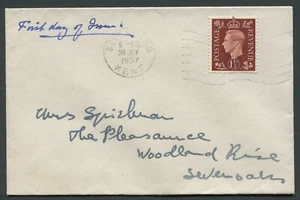 First day of Issue
30 JLY
1937
KENT
POSTAGE
REVENUE
1½
Mrs Spielman
The Pleasaunce
Woodland Rise
Sevenoaks